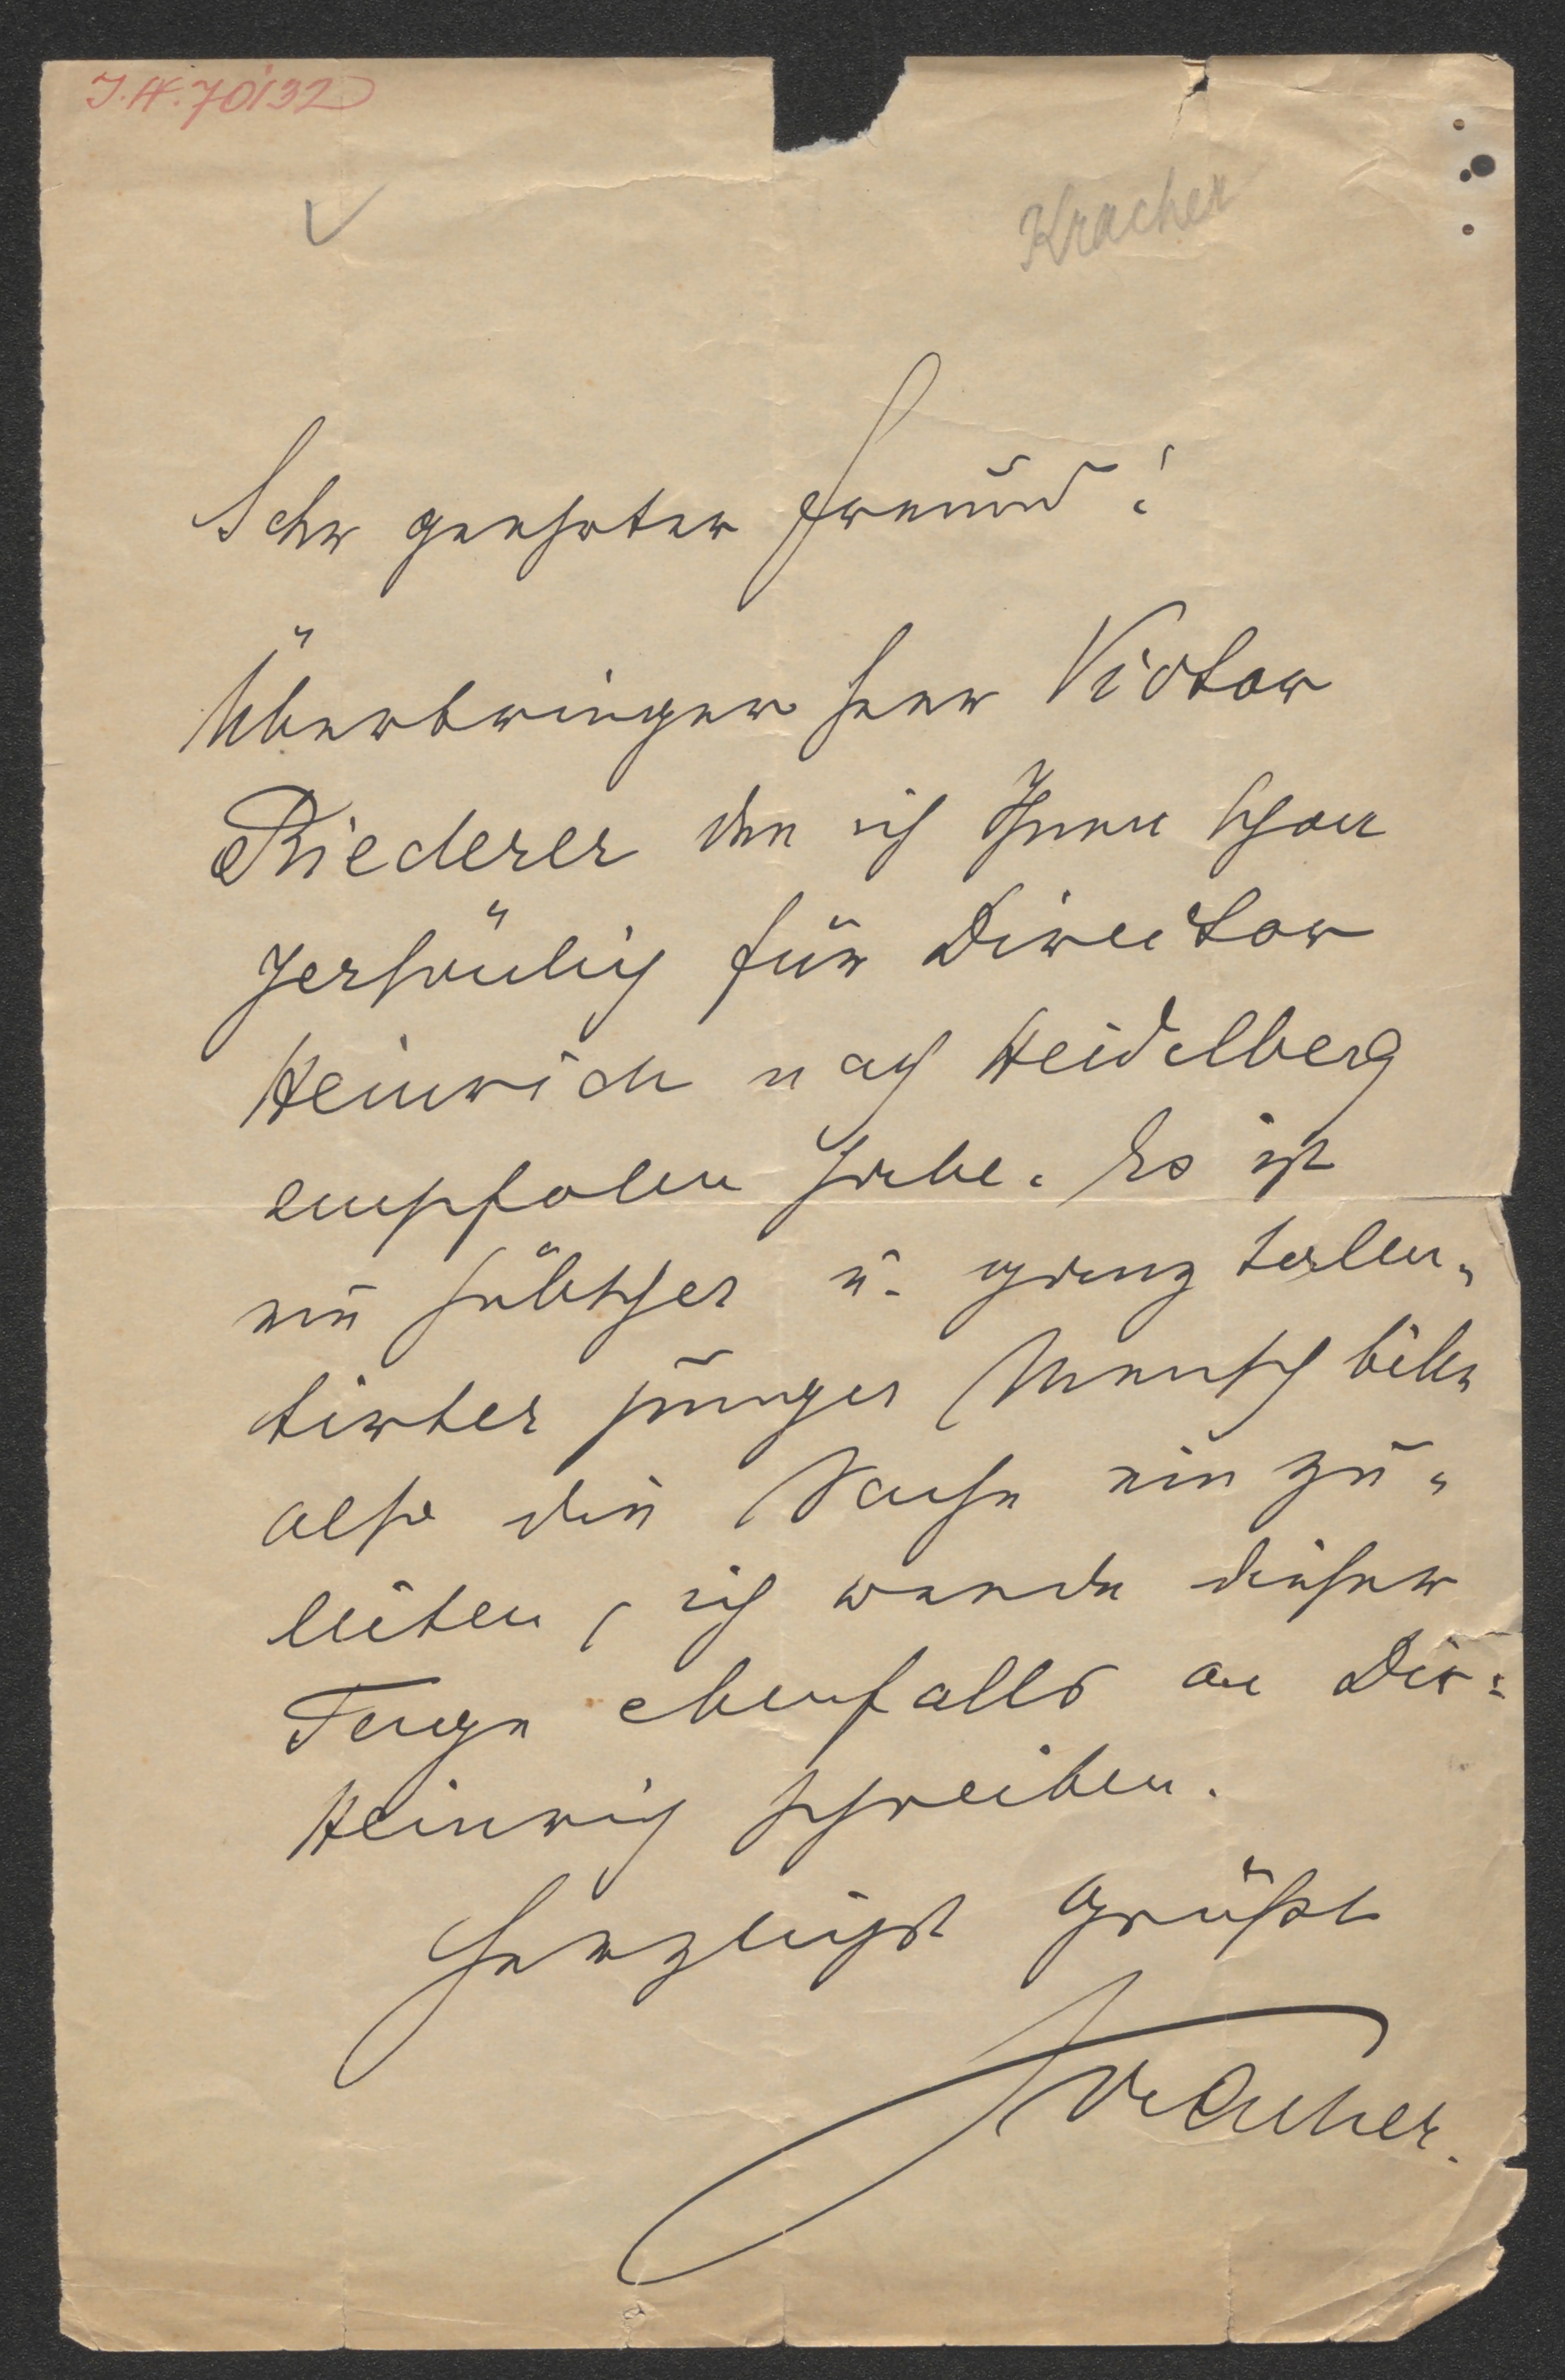 J.N. 70132
Kracher
Sehr geehrter Freund!
Überbringer Herr Victor
Riederer den ich Ihnen schon
persönlich für Director
Heinrich nach Heidelberg
empfolen habe. Es ist
ein hübscher u. ganz talen„
tirter junger Mensch bitte
also die Sache ein zu„
leiten, ich werde dieser
Tage ebenfalls an Dir:
Heinrich schreiben.
Herzlichst grüßt
Kracher.